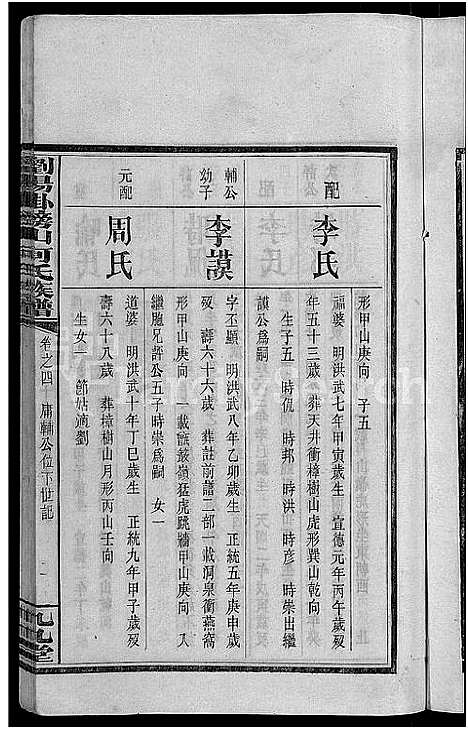 形甲山庚向 子五
配
李氏
福婆 明洪武七年甲寅歲生 宣德元年丙午歲歿
年五十三歲 葬天井衝樟樹山虎形巽山乾向
生子五 時侃 時邦 時洪 時彥 時崇出繼
謨公為嗣
輔公幼子
李謨
字丕顯 明洪武八年乙卯歲生 正統五年庚申歲
歿 壽六十六歲 葬註前譜二部一載洞泉衝燕窩
形甲山庚向 一載 嶺猛虎跳牆甲山庚向 入
繼胞兄評公五子時崇為嗣 女一
元配
周氏
道婆 明洪武十年丁巳歲生 正統九年甲子歲歿
壽六十八歲 葬樟樹山月形丙山壬向
生女一 節姑滴劉
瀏陽掛榜山何氏族譜
卷之四 庸輔公位下世記
九九堂